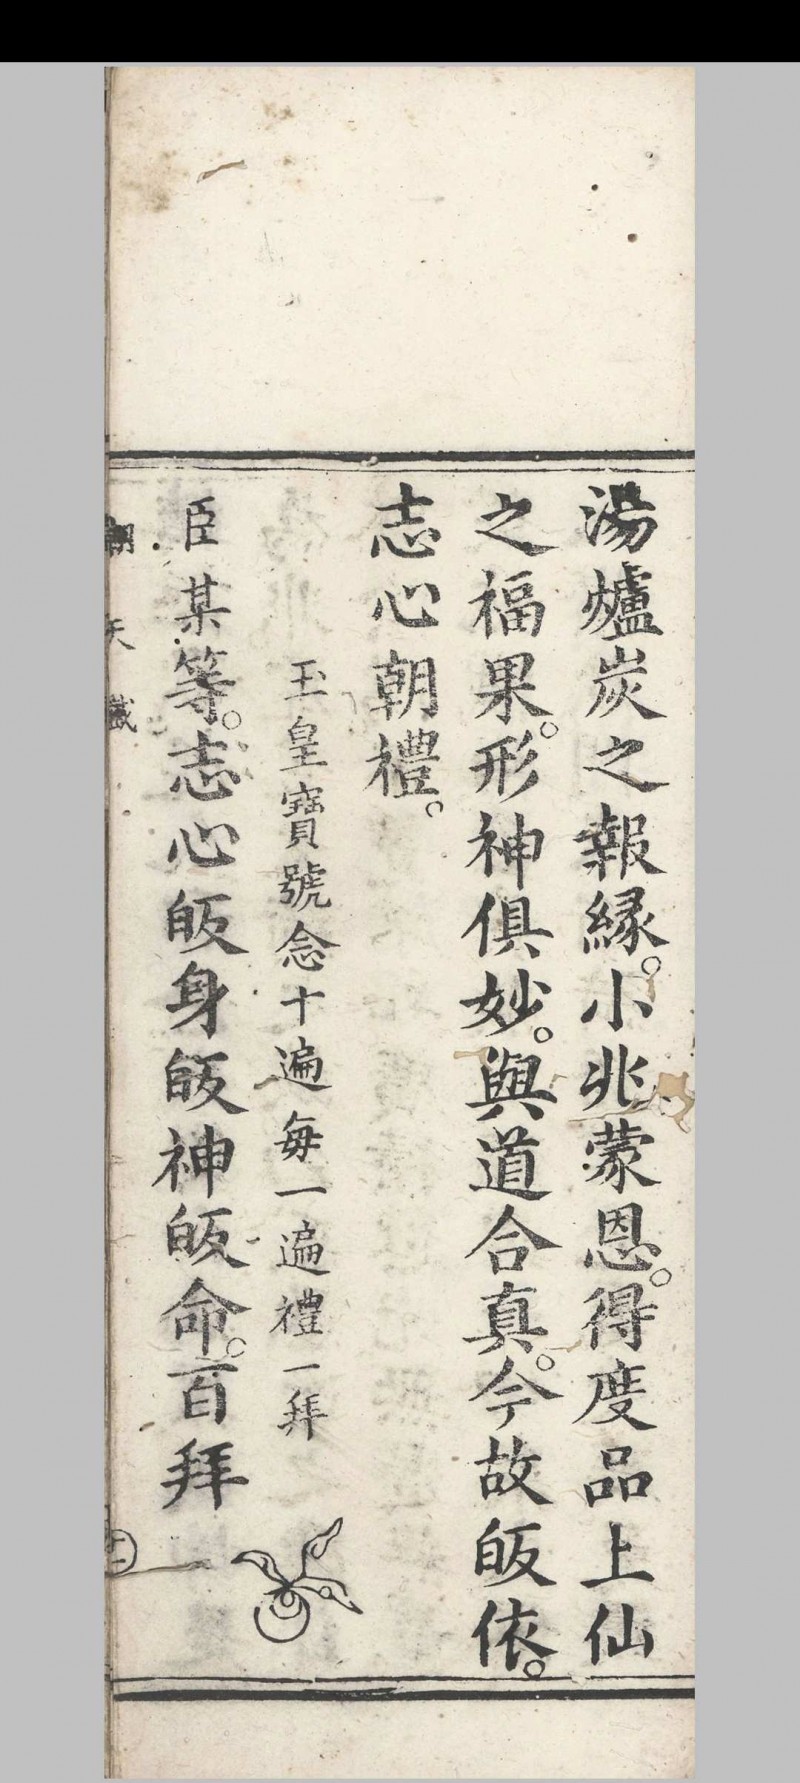 湯爐炭之報縁。小兆蒙恩。得度品上仙
之福果。形神俱妙。與道合真。今故皈依。
志心朝禮。
玉皇寶號念十遍每一遍禮一拜
臣某等。志心皈身皈神皈命。百拜
朝天懺